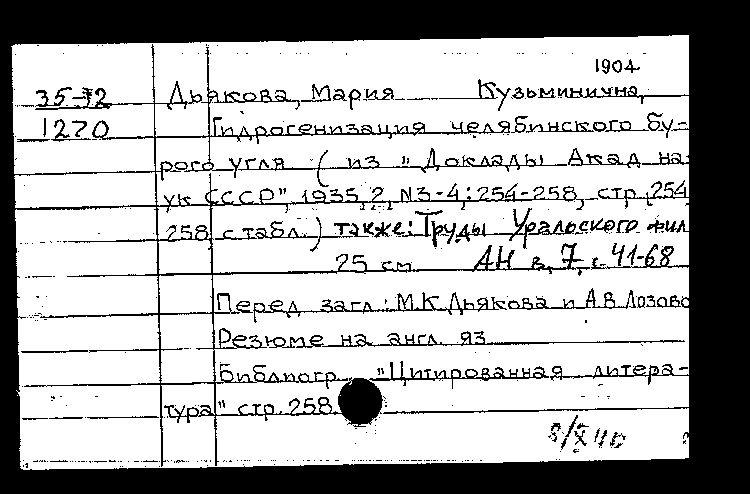 1904
35-12 Дьякова, Мария Кузьминична,
1270 Гидрогенизация челябинского бу-
рого угля (из "Доклады Акад на-
ук СССР", 1935, 2, N3-4,: 254-258, стр. 254
258, с табл.) также: Труды Уральского фил
25 см АН в. 7, с 41-68
Перед загл.: М.К Дьякова и А.В Лозово
Резюме на англ. яз
Библиогр. "Цитированная литера-
тура" стр. 258
8/X 40